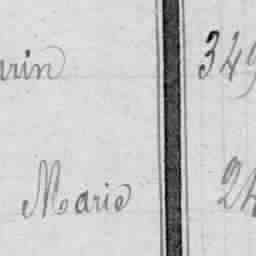 urin 349
Marie 24